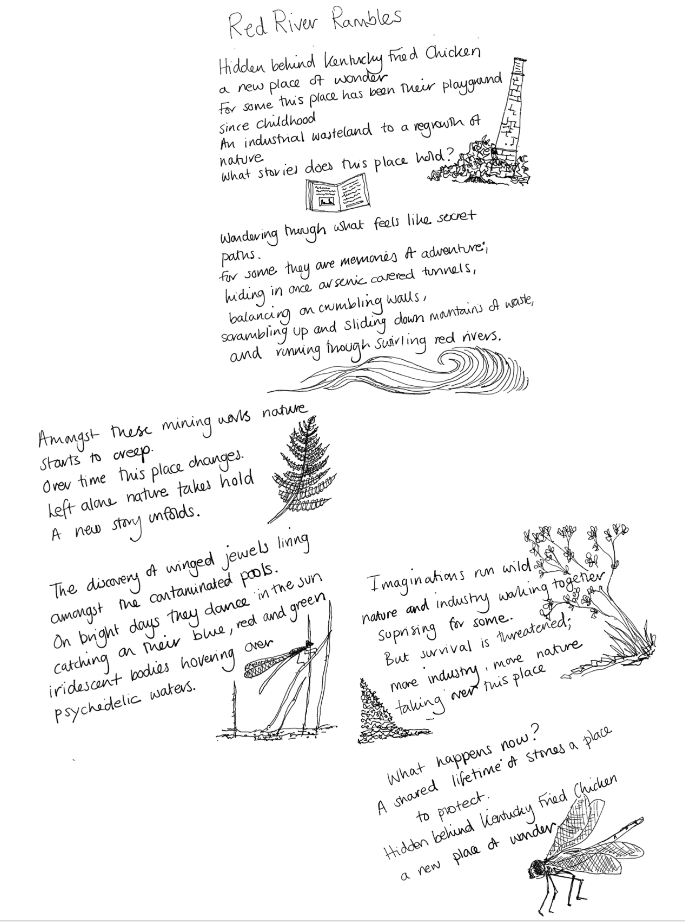 Red River Rambles
Hidden behind Kentucky Fried Chicken
a new place of wonder
For some this place has been their playground
since childhood
An industrial wasteland to a regrowth of
nature.
What stories does this place hold?
Wandering through what feels like secret
paths.
For some they are memories of adventure;
hiding in once arsenic covered tunnels,
balancing on crumbling walls,
scrambling up and sliding down mountains of waste,
and running through swirling red rivers.
Amongst these mining works nature
starts to creep.
Over time this place changes.
Left alone nature takes hold
A new story unfolds.
The discovery of winged jewels living
amongst the contaminated pools.
On bright days they dance in the sun
catching on their blue, red and green
iridescent bodies hovering over
psychedelic waters.
Imaginations run wild
nature and industry working together
suprising for some.
But survival is threatened;
more industry, more nature
taking over this place
What happens now?
A shared lifetime of stories a place
to protect.
Hidden behind Kentucky Fried Chicken
a new place of wonder